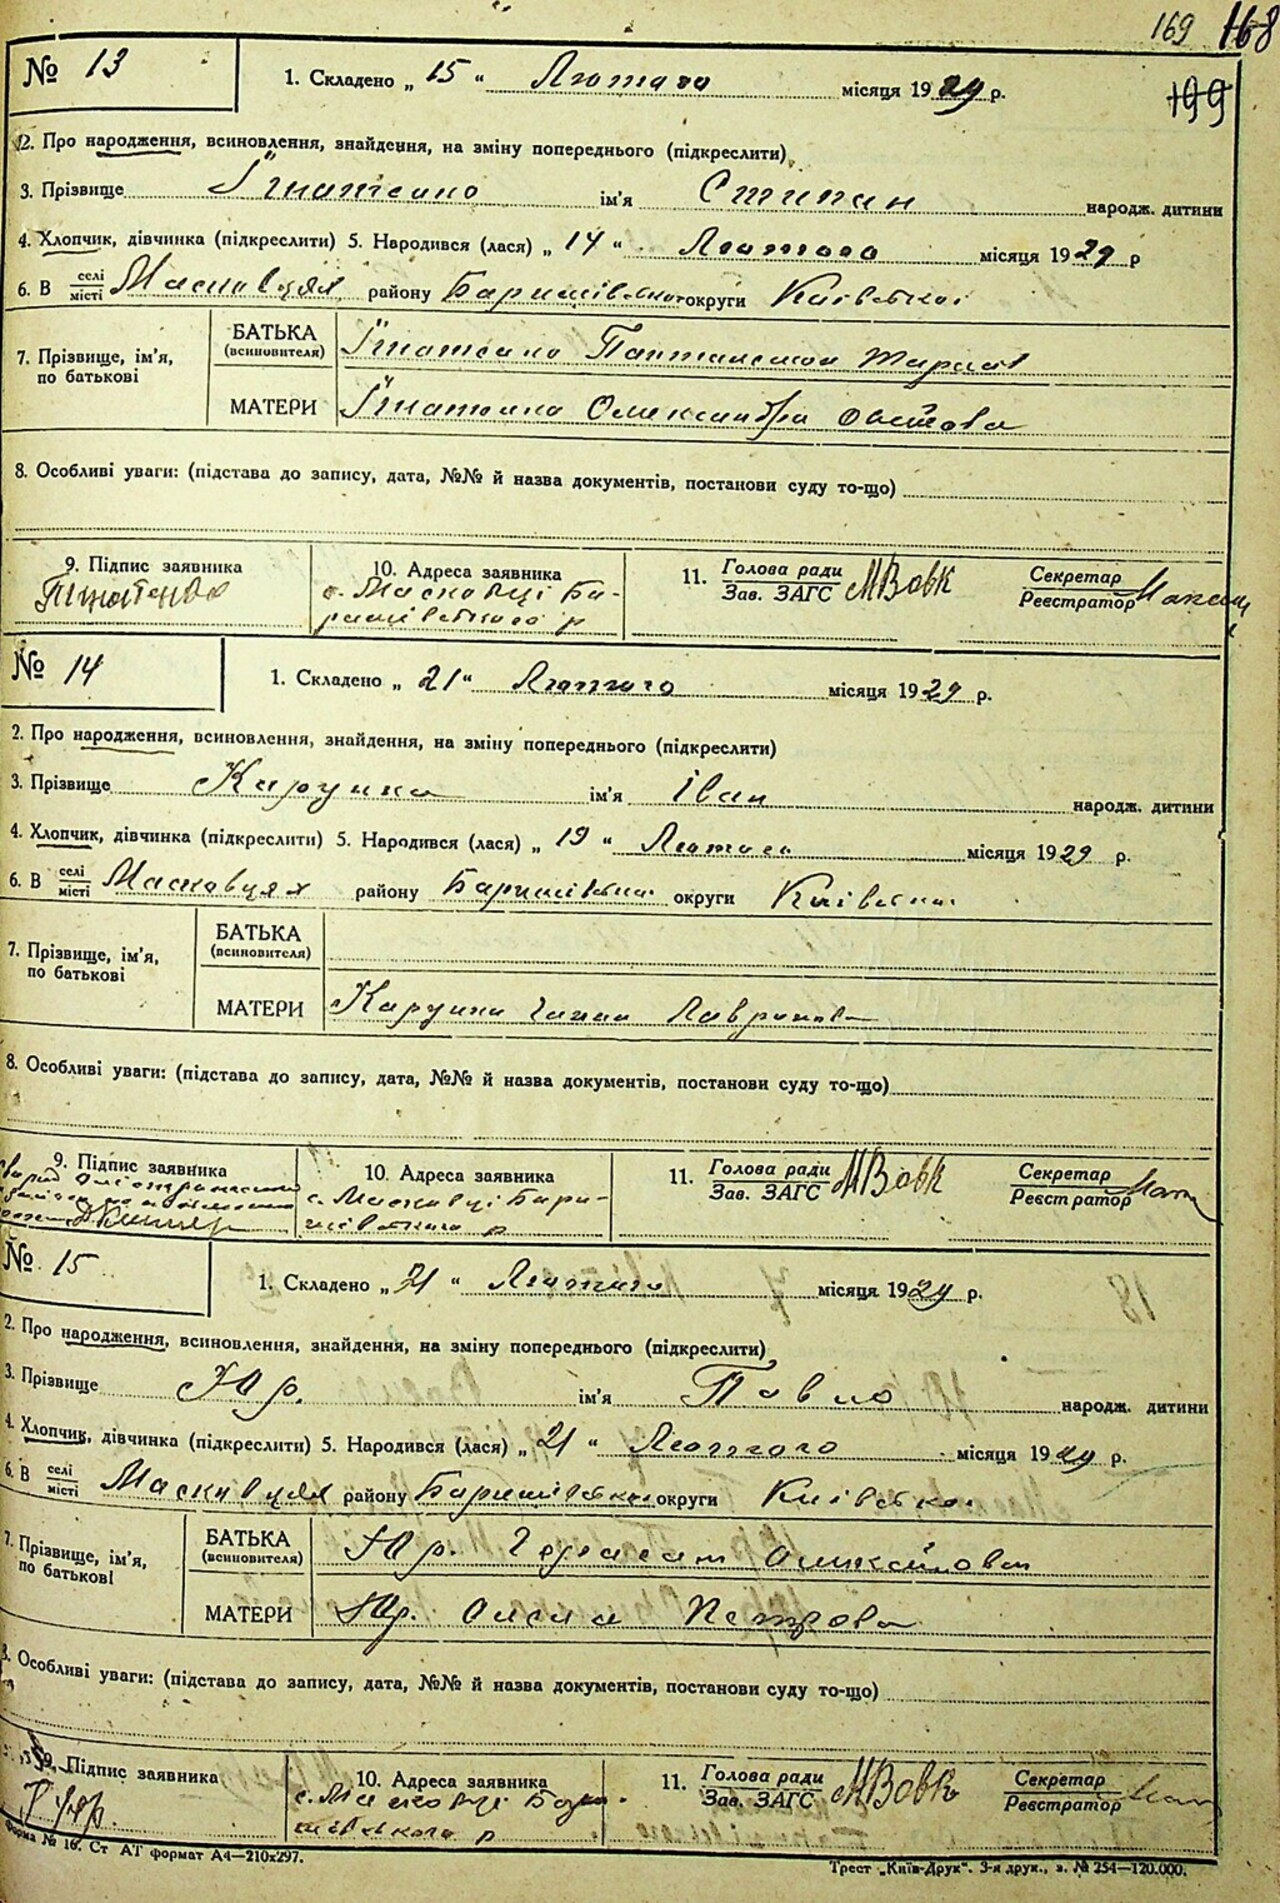 169 168
199
№ 13
1. Складено „ 15 “ Лютого місяця 1929 р.
2. Про народження, всиновлення, знайдення, на зміну попереднього (підкреслити)
3. Прізвище Гнатенко ім'я Стипан народж. дитини
4. Хлопчик, дівчинка (підкреслити) 5. Народився (лася) „ 14 “ Лютого місяця 1929 р
6. В селі/місті Масковцях району Баришівського округи Київської
7. Прізвище, ім'я, по батькові
БАТЬКА (всиновителя) Гнатенко
МАТЕРИ Гнатенко Олександра
8. Особливі уваги: (підстава до запису, дата, №№ й назва документів, постанови суду то-що)
9. Підпис заявника
10. Адреса заявника
с. Масковці Ба-
ришівського р
11. Голова ради/Зав. ЗАГС МВовк Секретар/Реєстратор
№ 14
1. Складено „ 21 “ Лютого місяця 1929 р.
2. Про народження, всиновлення, знайдення, на зміну попереднього (підкреслити)
3. Прізвище Карпунка ім'я Іван народж. дитини
4. Хлопчик, дівчинка (підкреслити) 5. Народився (лася) „ 19 “ Лютого місяця 1929 р.
6. В селі/місті Масковцях району Баришівська округи Київська
7. Прізвище, ім'я, по батькові
БАТЬКА (всиновителя)
МАТЕРИ Ганна Лавринова
8. Особливі уваги: (підстава до запису, дата, №№ й назва документів, постанови суду то-що)
9. Підпис заявника
10. Адреса заявника
с. Масковці Бари-
шівського р
11. Голова ради/Зав. ЗАГС МВовк Секретар/Реєстратор
№ 15
1. Складено „ 21 “ Лютого місяця 1929 р.
2. Про народження, всиновлення, знайдення, на зміну попереднього (підкреслити)
3. Прізвище Юр. ім'я Павло народж. дитини
4. Хлопчик, дівчинка (підкреслити) 5. Народився (лася) „ 21 “ Лютого місяця 1929 р.
6. В селі/місті Масковцях району Баришівської округи Київської
7. Прізвище, ім'я, по батькові
БАТЬКА (всиновителя) Юр. Герасим Олексійович
МАТЕРИ Юр. Олена Петрова
8. Особливі уваги: (підстава до запису, дата, №№ й назва документів, постанови суду то-що)
9. Підпис заявника
10. Адреса заявника
с. Масковці Бари-
шівського р
11. Голова ради/Зав. ЗАГС МВовк Секретар/Реєстратор
Форма № 16. Ст АТ формат А4—210х297.
Трест „Київ-Друк“. 3-я друк., з. № 254—120.000.